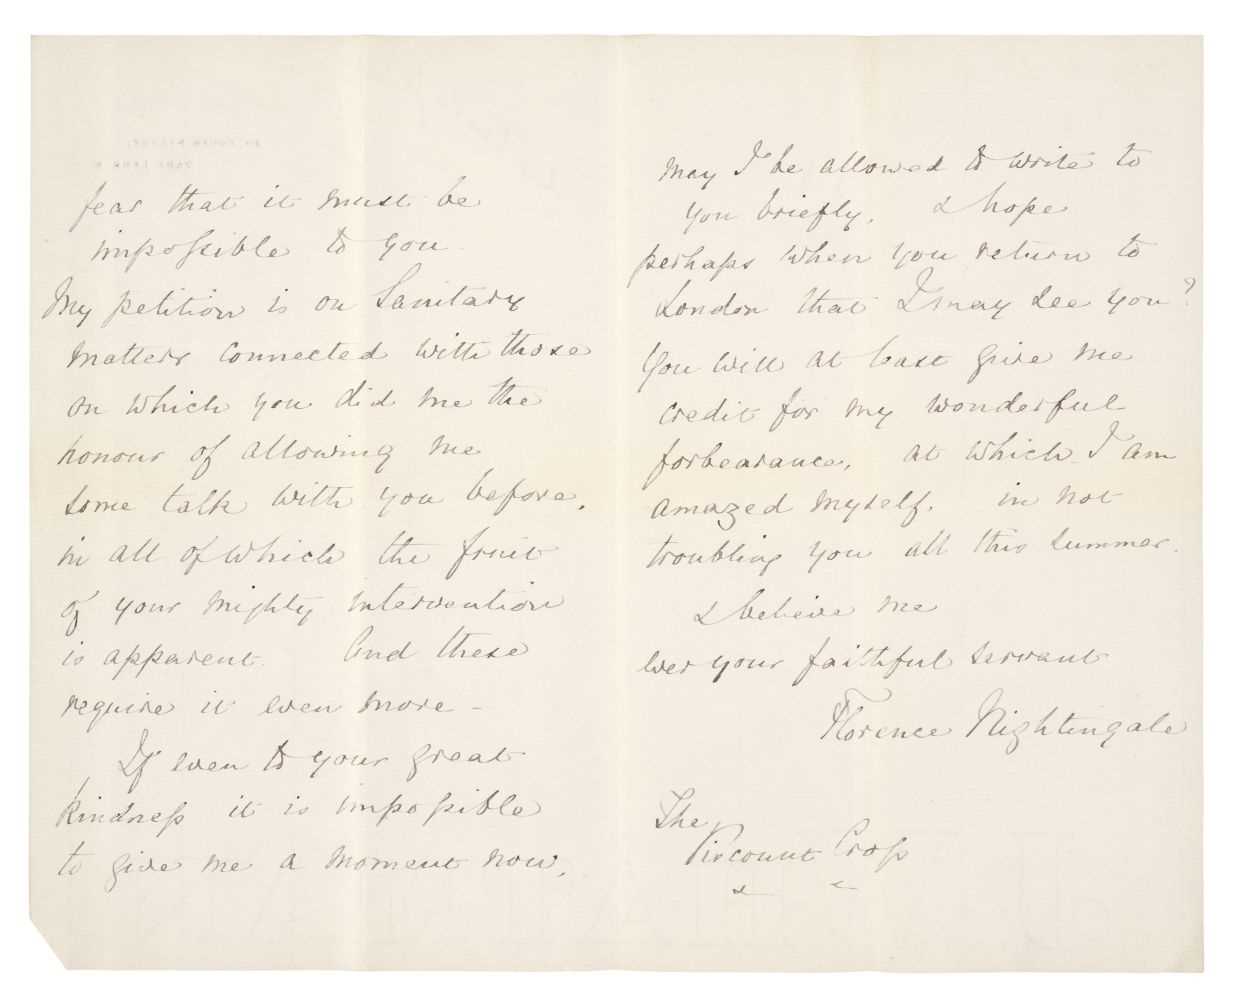 fear that it must be
impossible to you
My petition is on Sanitary
matters connected with those
on which you did me the
honour of allowing me
some talk with you before,
in all of which the fruit
of your mighty intervention
is apparent. And these
require it even more –
If even to your great
kindness it is impossible
to give me a moment now,
may I be allowed to write to
you briefly. & hope
perhaps when you return to
London that I may see you?
You will at least give me
credit for my wonderful
forbearance, at which I am
amazed myself, in not
troubling you all this summer.
& believe me
ever your faithful servant
Florence Nightingale
The
Viscount Cross